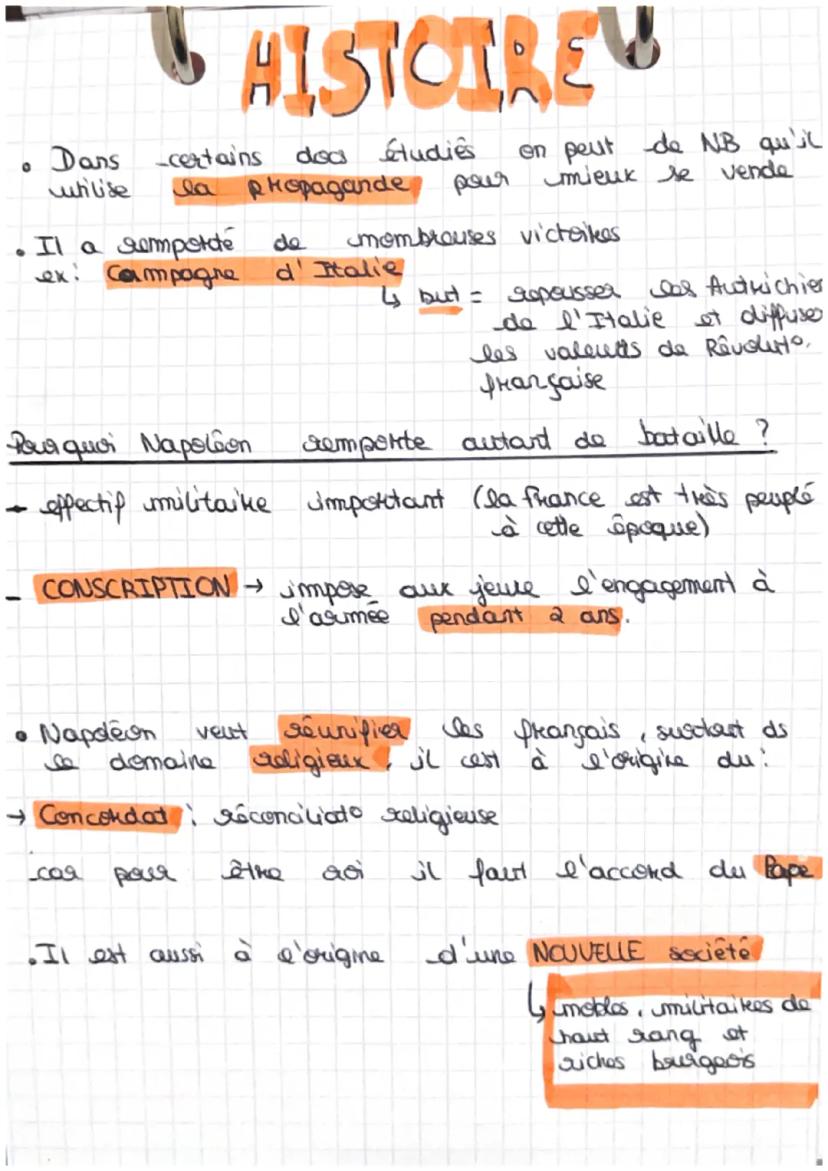 HISTOIRE
• Dans certains docs étudiés on peut de NB qu'il
utilise la propagande pour mieux se vende
• Il a remporté de nombreuses victoires
ex: Campagne d'Italie
↳ but = repousser les Autrichier
de l'Italie et diffuser
les valeurs de Révoluto.
française
Pourquoi Napoléon remporte autant de bataille ?
- effectif militaire important (la france est très peuplé
à cette époque)
- CONSCRIPTION → impose aux jeune l'engagement à
l'armée pendant 2 ans.
• Napoléon veut réunifier les français, surtout ds
le domaine religieux, il est à l'origine du :
→ Concordat : réconciliato religieuse
car pour être roi il faut l'accord du Pape
• Il est aussi à l'origine d'une NOUVELLE société
↳ nobles, militaires de
haut rang et
riches bourgeois